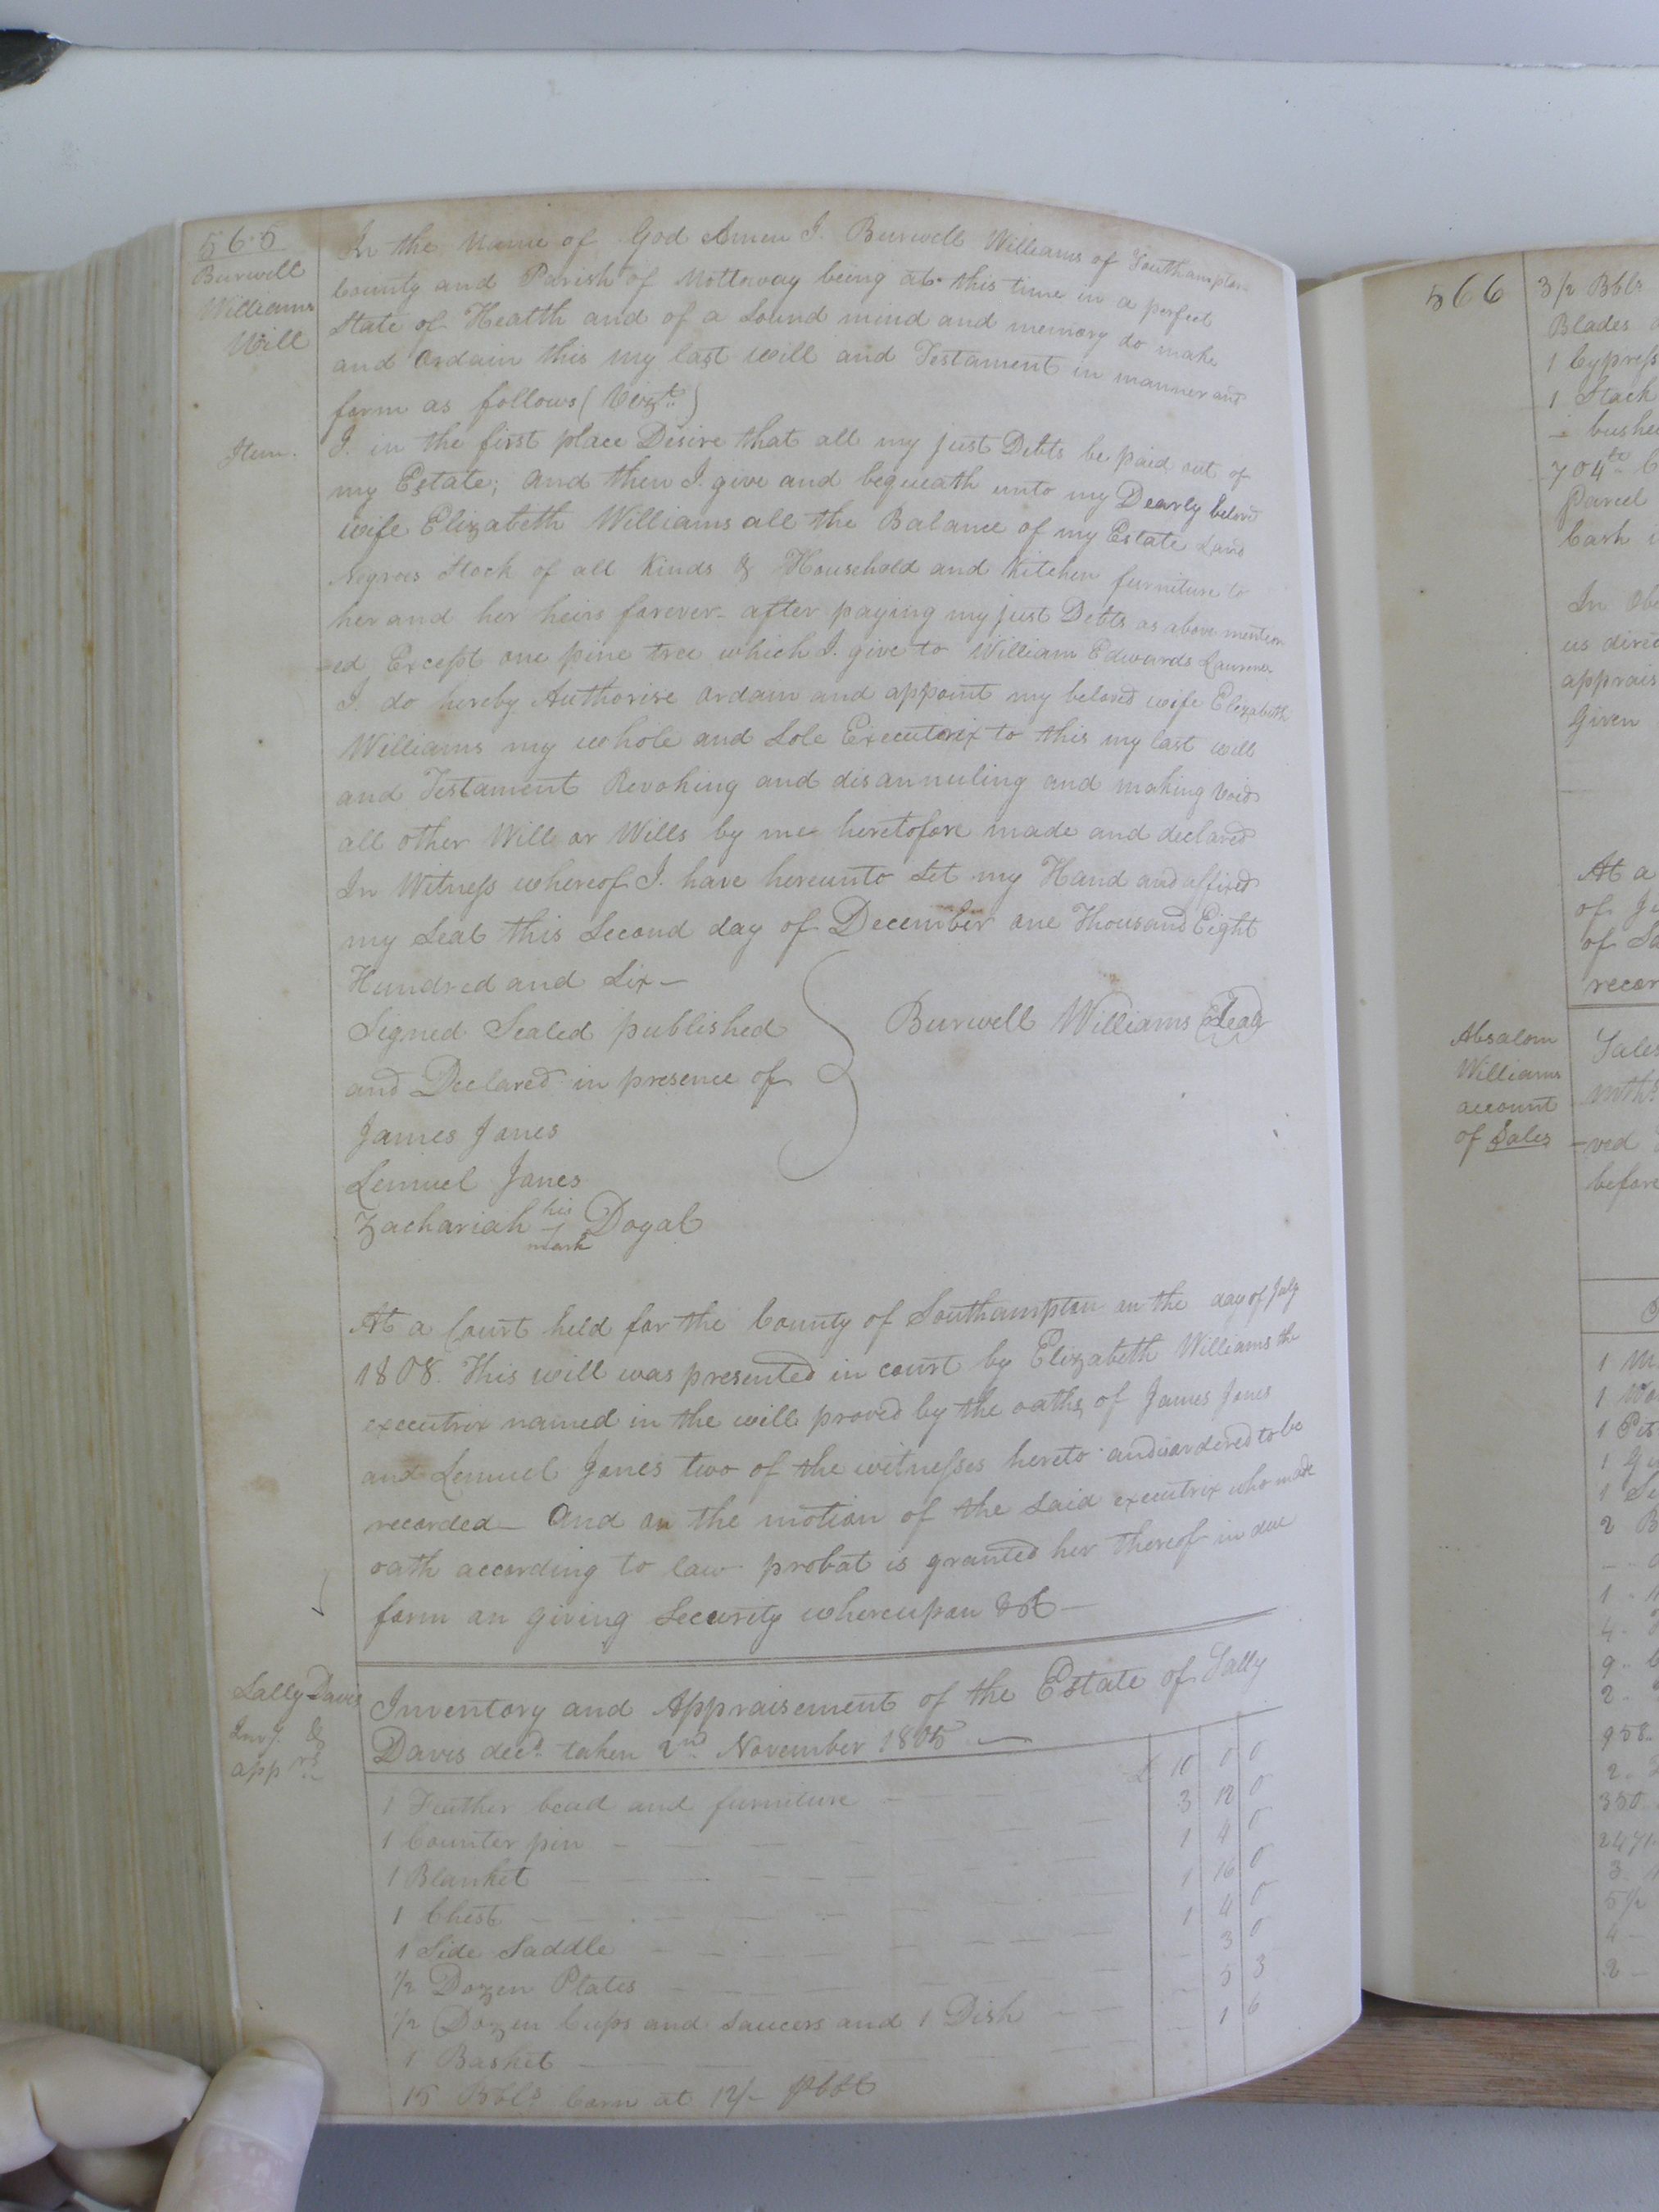 565
Burwell
Williams
Will
In the Name of God Amen I. Burwell Williams of Southampton
County and Parish of Nottoway being at this time in a perfect
State of Health and of a Sound mind and memory do make
and Ordain this my last will and Testament in manner and
form as follows (Vizt.)
Item.
I. in the first place Desire that all my just Debts be paid out of
my Estate; and then I. give and bequeath unto my Dearly belovd
wife Elizabeth Williams all the Balance of my Estate Land
Negroes Stock of all Kinds & Household and Kitchen furniture to
her and her heirs forever - after paying my just Debts as above mention
-ed Except one pine tree which I. give to William Edwards
I. do hereby Authorise ordain and appoint my beloved wife Elizabeth
Williams my whole and Sole Executorix to this my last will
and Testament Revoking and disannuling and making void
all other Will or Wills by me heretofore made and declared
In Witness whereof I. have hereunto Set my Hand and affixed
my Seal this Second day of December one Thousand Eight
Hundred and Six —
Signed Sealed published
and Declared in presence of
Burwell Williams Seal
James Jones
Lemuel Jones
Zachariah his mark Dogal
At a Court held for the County of Southampton on the day of July
1808. This will was presented in court by Elizabeth Williams the
executrix named in the will proved by the oaths of James Jones
and Lemuel Jones two of the witnesses hereto and ordered to be
recorded — And on the motion of the said executrix who made
oath according to law probat is granted her thereof in due
form on giving Security whereupon &c —
Sally Davis
Invy. &
apprs.
Inventory and Appraisement of the Estate of Sally
Davis decd. taken 2nd. November 1805 —
1 Feather bead and furniture £ 10 0 0
1 Counter pin 3 12 0
1 Blanket 1 4 0
1 Chest 1 16 0
1 Side Saddle 1 4 0
1/2 Dozen Plates 3 0
1/2 Dozen Cups and Saucers and 1 Dish 3 3
1 Basket 1 6
15 Bbls Corn at 12/-
566
3/2 Bbls
Blades
1 Cypress
1 Stack
704
Parcel
Cash
In Obe
us direc
apprais
Given
At a
of Ju
of So
recor
Absalom
Williams
account
of Sales
Sales
-ved
before
1
1 Wo
1
1
1
2 B
1
4
9
2
958
2
350
2471
3
5 1/2
4
2